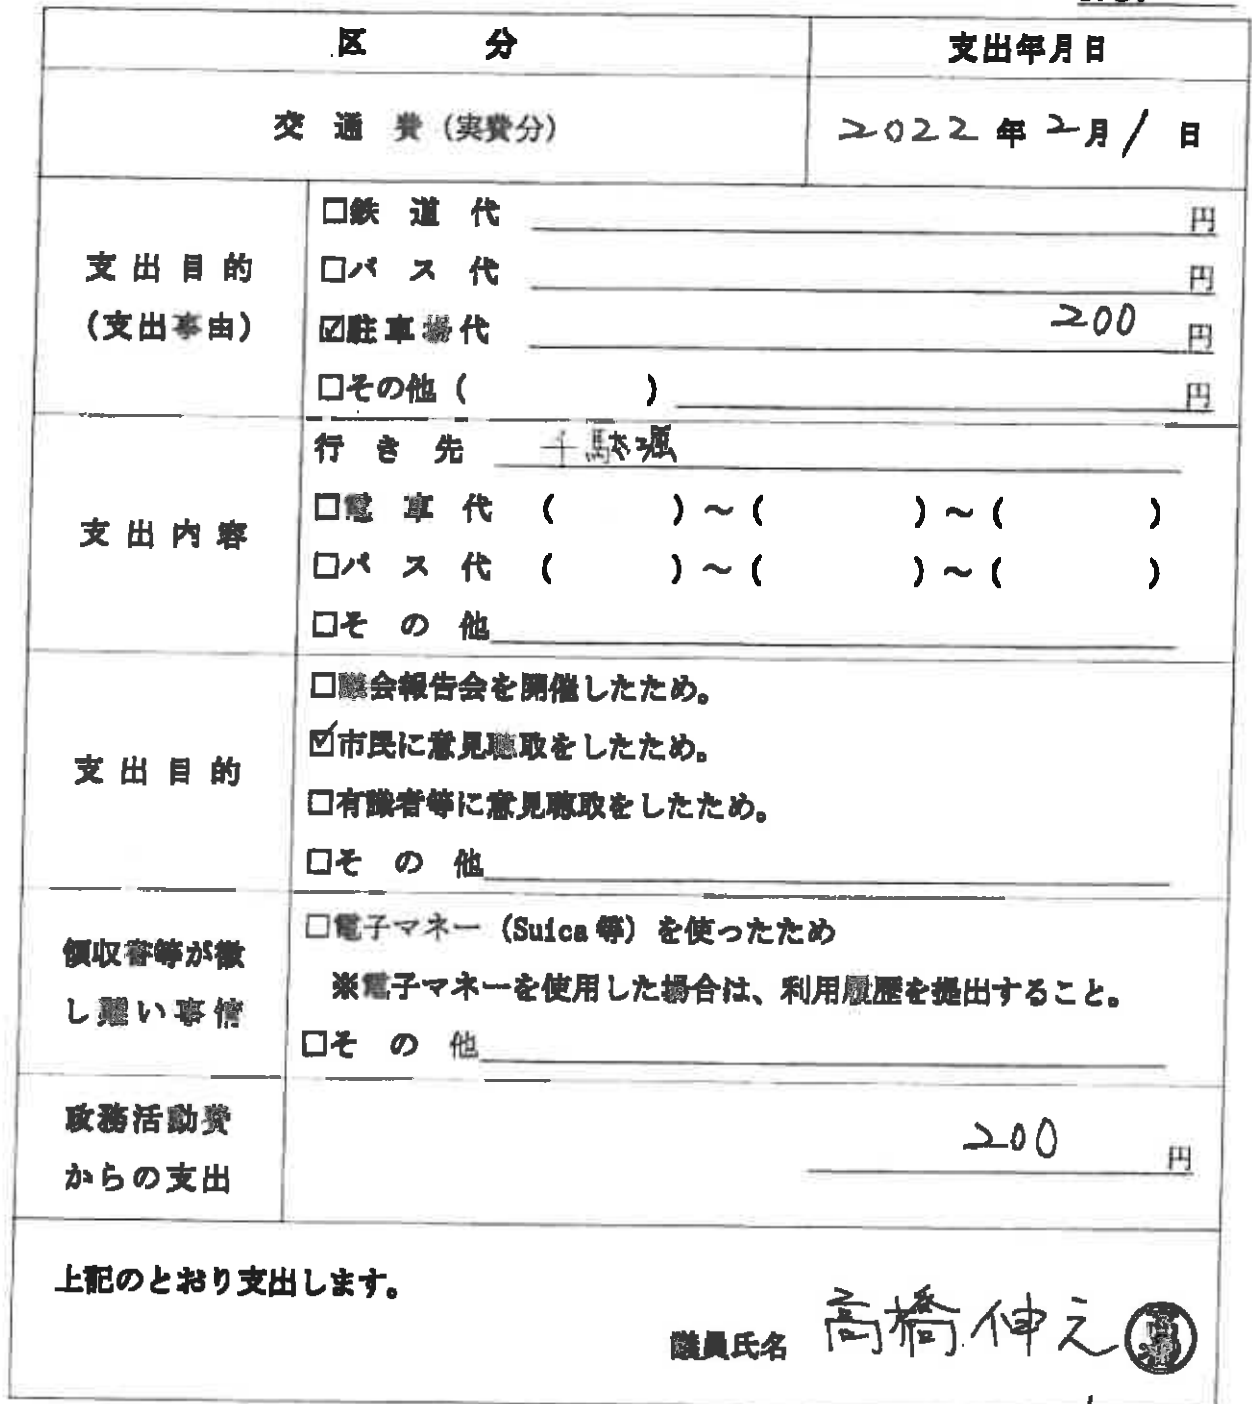 区 分 支出年月日
交 通 費 (実費分) 2022 年 2 月 1 日
支出目的
(支出事由)
□鉄 道 代 円
□バ ス 代 円
☑駐車場代 200 円
□その他 ( ) 円
支出内容
行 き 先 千駄堀
□電 車 代 ( ) ～ ( ) ～ ( )
□バ ス 代 ( ) ～ ( ) ～ ( )
□そ の 他
支出目的
□議会報告会を開催したため。
☑市民に意見聴取をしたため。
□有識者等に意見聴取をしたため。
□そ の 他
領収書等が徴
し難い事情
□電子マネー (Suica 等) を使ったため
※電子マネーを使用した場合は、利用履歴を提出すること。
□そ の 他
政務活動費
からの支出
200 円
上記のとおり支出します。
議員氏名 高橋伸之